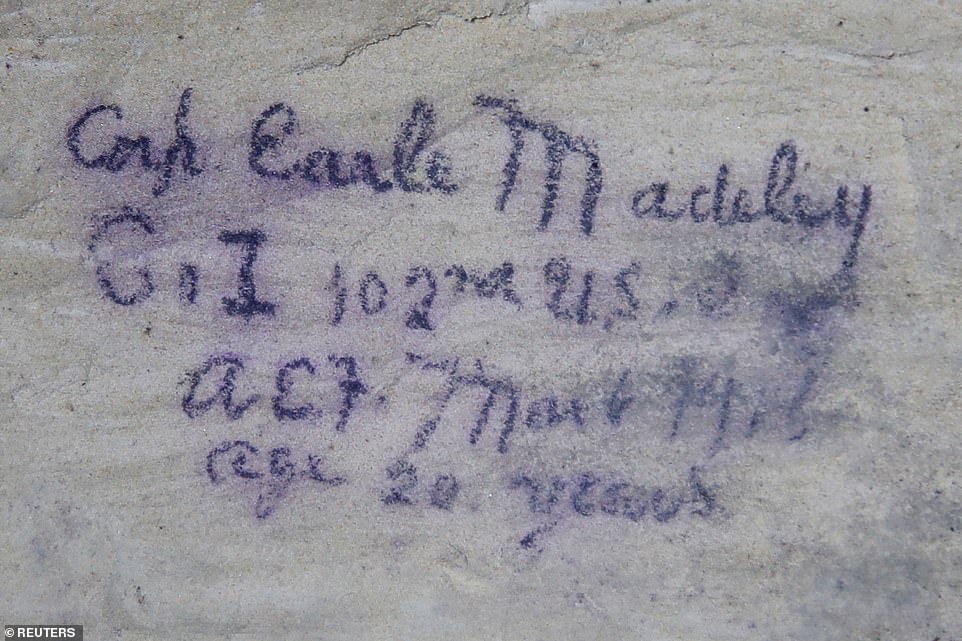 Corp Earle Madeley
Co I 102nd U.S.
AEF. March
age 20 years
© REUTERS